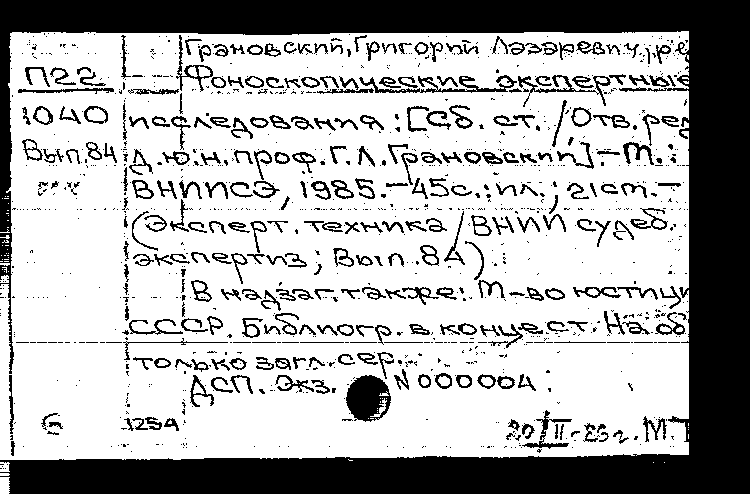 Грановский, Григорий Лазаревич, ре
П22 Фоноскопические экспертные
1040 исследования : [Сб. ст. / Отв. ред
Вып.84 д.ю.н. проф. Г.Л. Грановский]. - М. :
ВНИИСЭ, 1985. - 45с. : ил. ; 21см. -
(Эксперт. техника / ВНИИ судеб.
экспертиз ; Вып. 84).
В надзаг. также: М-во юстици
СССР. Библиогр. в конце ст. На об
только загл. сер.
ДСП. Экз. N 000004 :
1254 20/II-86г. М.Т